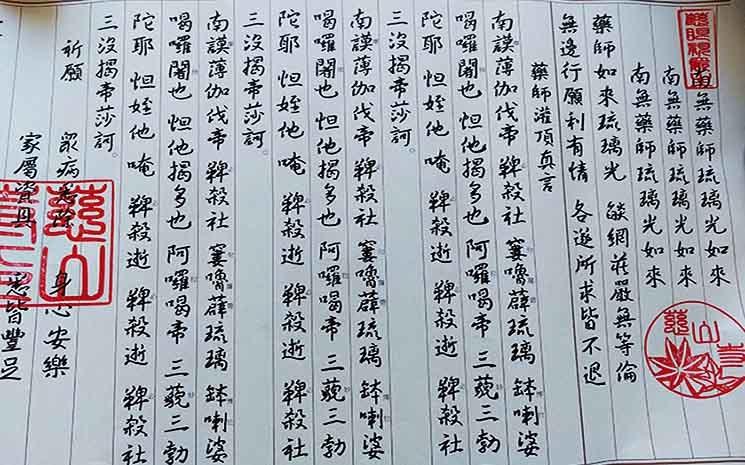 南無藥師琉璃光如來
南無藥師琉璃光如來
南無藥師琉璃光如來
藥師如來琉璃光 燄網莊嚴無等倫
無邊行願利有情 各遂所求皆不退
藥師灌頂真言
南謨薄伽伐帝 鞞殺社 窶嚕薜琉璃 鉢喇婆
喝囉闍也 怛他揭多也 阿囉喝帝 三藐三勃
陀耶 怛姪他 唵 鞞殺逝 鞞殺逝 鞞殺社
三沒揭帝莎訶。
南謨薄伽伐帝 鞞殺社 窶嚕薜琉璃 鉢喇婆
喝囉闍也 怛他揭多也 阿囉喝帝 三藐三勃
陀耶 怛姪他 唵 鞞殺逝 鞞殺逝 鞞殺社
三沒揭帝莎訶。
南謨薄伽伐帝 鞞殺社 窶嚕薜琉璃 鉢喇婆
喝囉闍也 怛他揭多也 阿囉喝帝 三藐三勃
陀耶 怛姪他 唵 鞞殺逝 鞞殺逝 鞞殺社
三沒揭帝莎訶。
祈願 眾病悉除 身心安樂
家屬資具 悉皆豐足
慈山寺
慈山